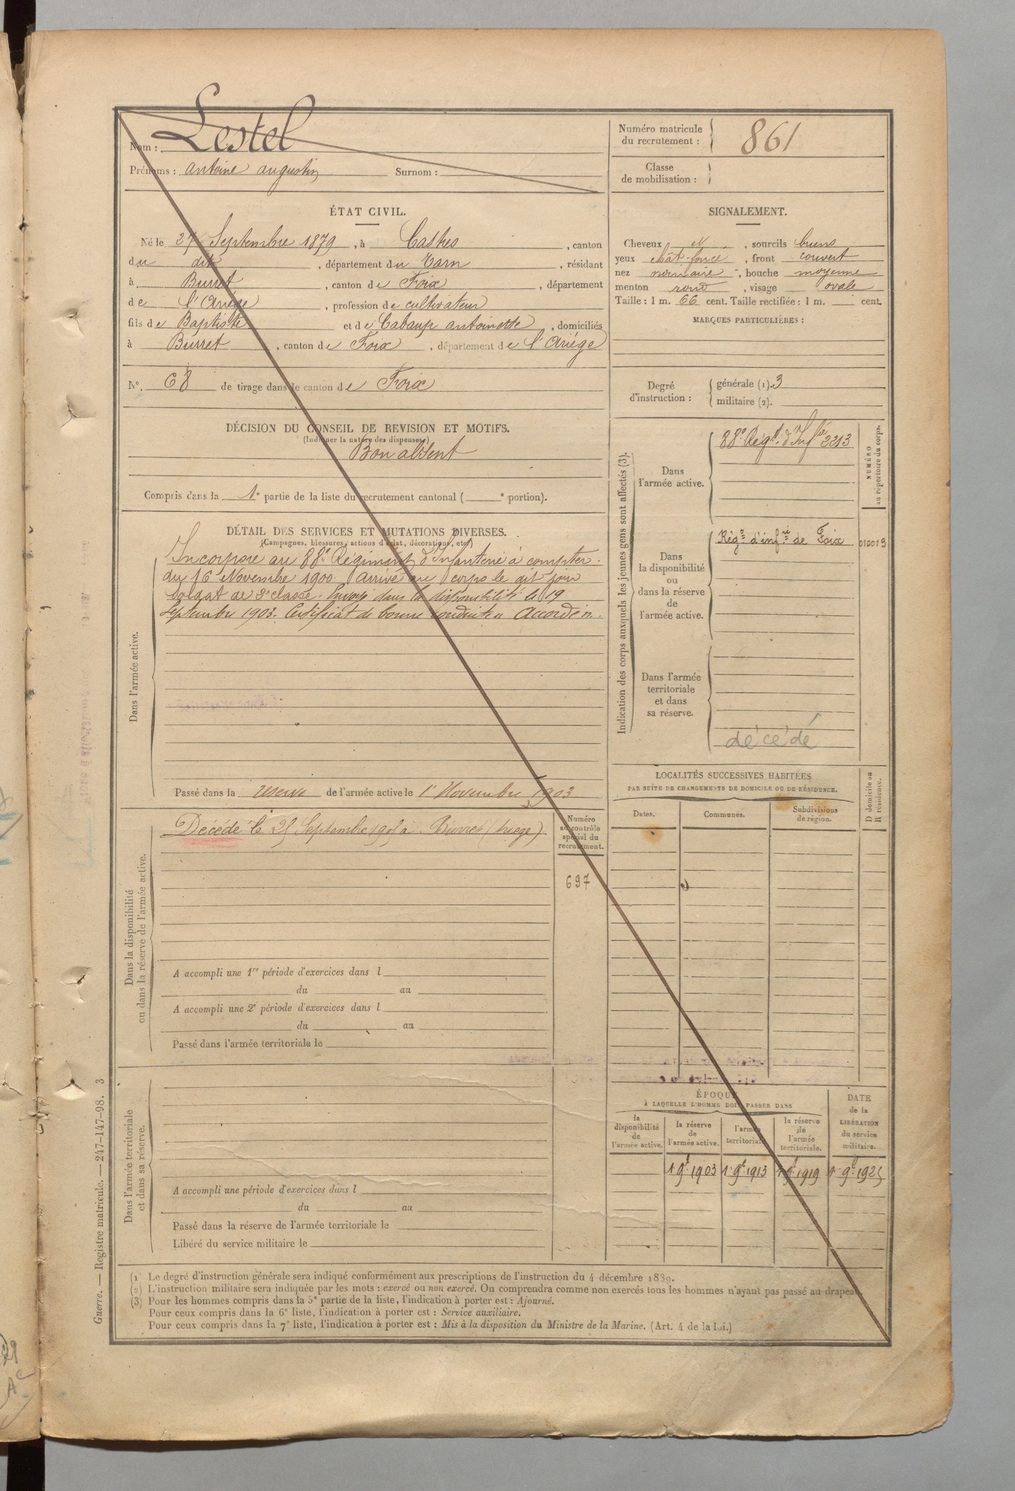 Nom : Lestel
Prénoms : antoine augustin Surnom :
Numéro matricule
du recrutement : 861
Classe
de mobilisation :
ÉTAT CIVIL.
Né le 27 Septembre 1879, à Castres, canton
du dit, département du Tarn, résidant
à Burret, canton de Foix, département
de l'Ariège, profession de cultivateur
fils de Baptiste et de Cabaup antoinette, domiciliés
à Burret, canton de Foix, département de l'Ariège
No. 68 de tirage dans le canton de Foix
SIGNALEMENT.
Cheveux N, sourcils bruns
yeux chât-foncé, front couvert
nez ordinaire, bouche moyenne
menton rond, visage ovale
Taille : 1 m. 66 cent. Taille rectifiée : 1 m. cent.
MARQUES PARTICULIÈRES :
Degré
d'instruction :
générale (1). 3
militaire (2).
DÉCISION DU CONSEIL DE REVISION ET MOTIFS.
(Indiquer la nature des dispenses)
Bon absent
Compris dans la 1e partie de la liste du recrutement cantonal ( e portion).
DÉTAIL DES SERVICES ET MUTATIONS DIVERSES.
(Campagnes, blessures, actions d'éclat, décorations, etc.)
Dans l'armée active.
Incorporé au 88e Régiment d'Infanterie à compter
du 16 Novembre 1900. Arrivé au corps le dit jour
Soldat de 2e classe. Envoyé dans la disponibilité le 19
Septembre 1903. Certificat de bonne conduite Accordé
Passé dans la réserve de l'armée active le 1er Novembre 1903
Indication des corps auxquels les jeunes gens sont affectés (3).
Dans
l'armée active.
88e Régt d'Infie 2213
NUMÉRO
au répertoire du corps.
Dans
la disponibilité
ou
dans la réserve
de
l'armée active.
Régt d'infie de Foix 010013
Dans l'armée
territoriale
et dans
sa réserve.
décédé
LOCALITÉS SUCCESSIVES HABITÉES
PAR SUITE DE CHANGEMENTS DE DOMICILE OU DE RÉSIDENCE.
Dates. Communes. Subdivisions
de région.
D domicile ou
R résidence.
Dans la disponibilité
ou dans la réserve de l'armée active.
Décédé le Septembre à Burret (Ariège)
Numéro
au contrôle
spécial du
recrutement.
697
A accompli une 1re période d'exercices dans l
du au
A accompli une 2e période d'exercices dans l
du au
Passé dans l'armée territoriale le
ÉPOQUE
À LAQUELLE L'HOMME DOIT PASSER DANS
la
disponibilité
de
l'armée active.
la réserve
de
l'armée active.
l'armée
territoriale.
la réserve
de
l'armée
territoriale.
DATE
de la
LIBÉRATION
du service
militaire.
1 9e 1903 1 9e 1913 1 9e 1919 1 9e 1925
Dans l'armée territoriale
et dans sa réserve.
A accompli une période d'exercices dans l
du au
Passé dans la réserve de l'armée territoriale le
Libéré du service militaire le
Guerre. — Registre matricule. — 247-147-98. 3
(1) Le degré d'instruction générale sera indiqué conformément aux prescriptions de l'instruction du 4 décembre 1889.
(2) L'instruction militaire sera indiquée par les mots : exercé ou non exercé. On comprendra comme non exercés tous les hommes n'ayant pas passé au drapeau.
(3) Pour les hommes compris dans la 5e partie de la liste, l'indication à porter est : Ajourné.
Pour ceux compris dans la 6e liste, l'indication à porter est : Service auxiliaire.
Pour ceux compris dans la 7e liste, l'indication à porter est : Mis à la disposition du Ministre de la Marine. (Art. 4 de la Loi.)